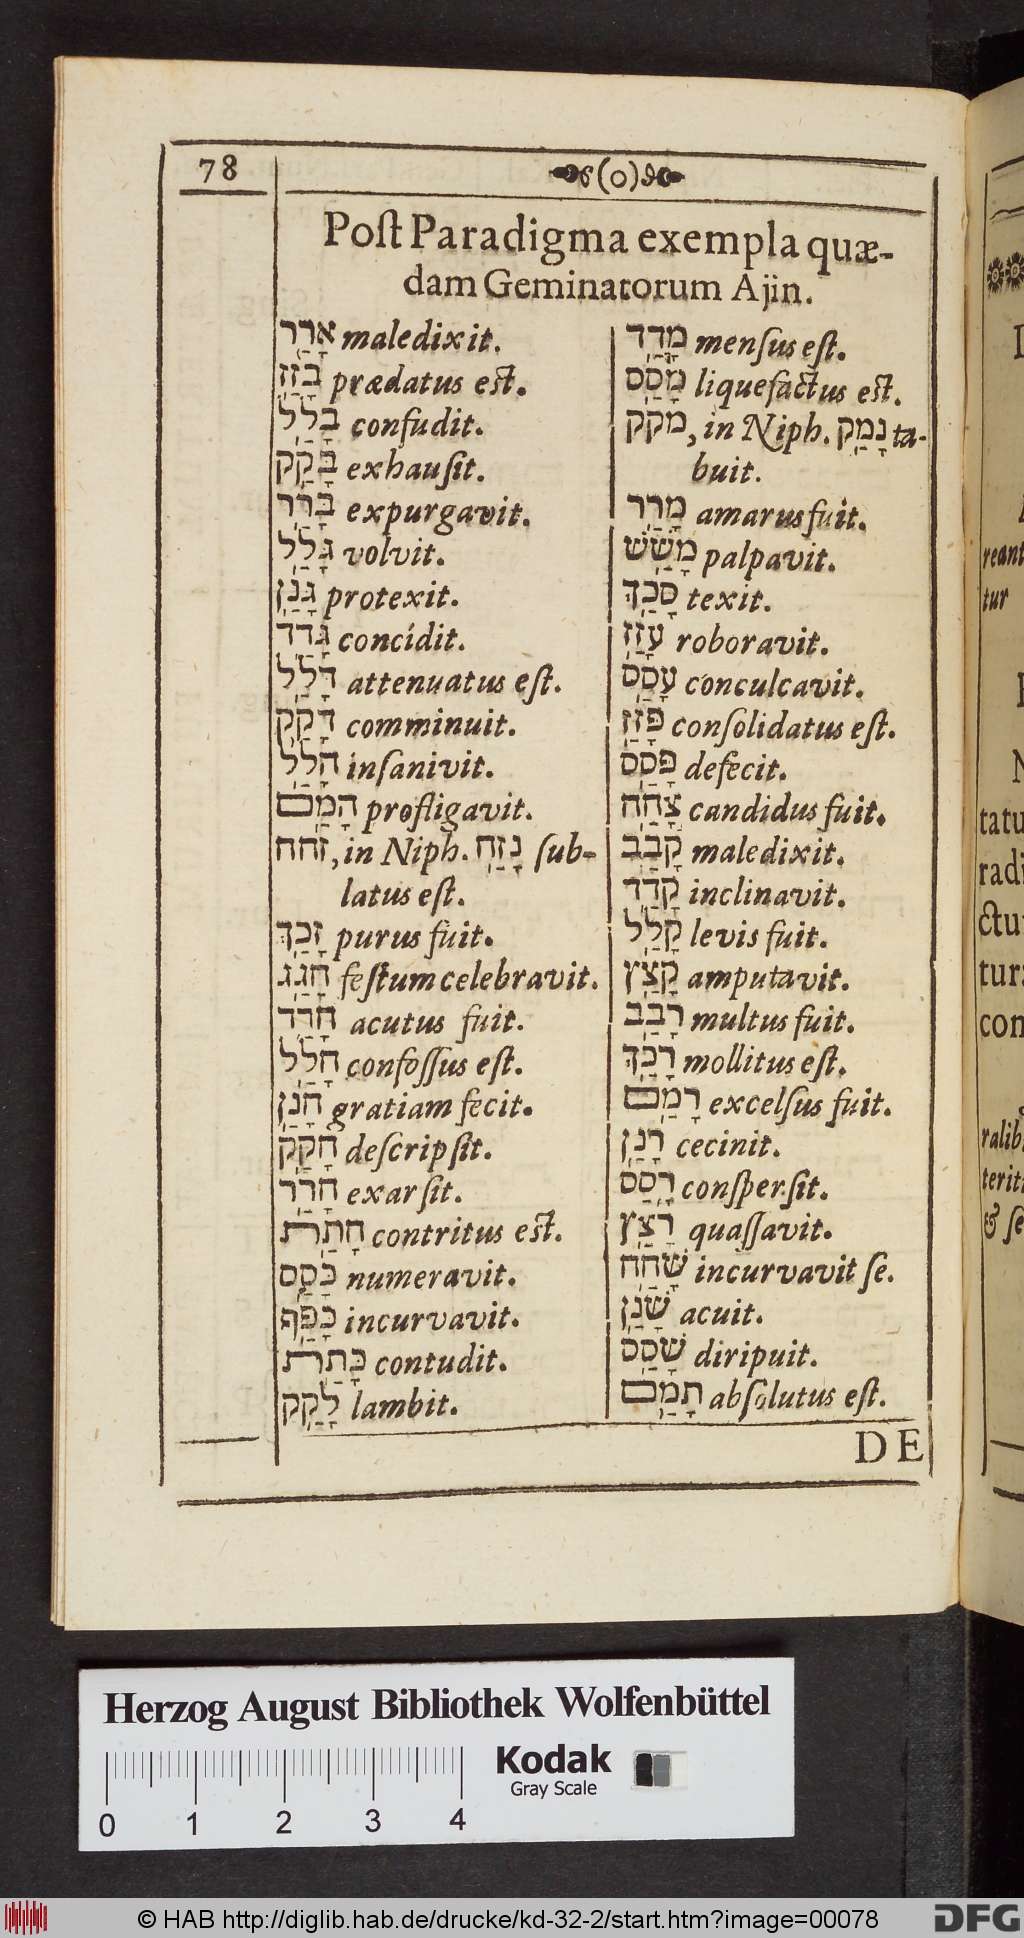 78
(o)
Poſt Paradigma exempla quæ-
dam Geminatorum Ajin.
אָרַר maledixit.
בָּזַז prædatus est.
בָּלַל confudit.
בָּקַק exhauſit.
בָּרַר expurgavit.
גָּלַל volvit.
גָּנַן protexit.
גָּדַד concidit.
דָּלַל attenuatus eſt.
דָּקַק comminuit.
הָלַל inſanivit.
הָמַם profligavit.
זחח, in Niph. נָזַח ſub-
latus eſt.
זָכַךְ purus fuit.
חָגַג feſtum celebravit.
חָדַד acutus fuit.
חָלַל confoſſus eſt.
חָנַן gratiam fecit.
חָקַק deſcripſit.
חָרַר exarſit.
חָתַת contritus est.
כָּסַס numeravit.
כָּפַף incurvavit.
כָּתַת contudit.
לָקַק lambit.
מָדַד menſus eſt.
מָסַס liquefactus est.
מקק, in Niph. נָמַק ta-
buit.
מָרַר amarus fuit.
מָשַׁשׁ palpavit.
סָכַךְ texit.
עָזַז roboravit.
עָסַס conculcavit.
פָּזַז conſolidatus eſt.
פָּסַס defecit.
צָחַח candidus fuit.
קָבַב maledixit.
קָדַד inclinavit.
קָלַל levis fuit.
קָצַץ amputavit.
רָבַב multus fuit.
רָכַךְ mollitus eſt.
רָמַם excelſus fuit.
רָנַן cecinit.
רָסַס conſperſit.
רָצַץ quaſſavit.
שָׁחַח incurvavit ſe.
שָׁנַן acuit.
שָׁסַס diripuit.
תָּמַם abſolutus eſt.
DE
reant
tur
tatu
radi
ctu
tur
con
ralib
teriti
& ſe
Herzog August Bibliothek Wolfenbüttel
Kodak
Gray Scale
0 1 2 3 4
© HAB http://diglib.hab.de/drucke/kd-32-2/start.htm?image=00078
DFG